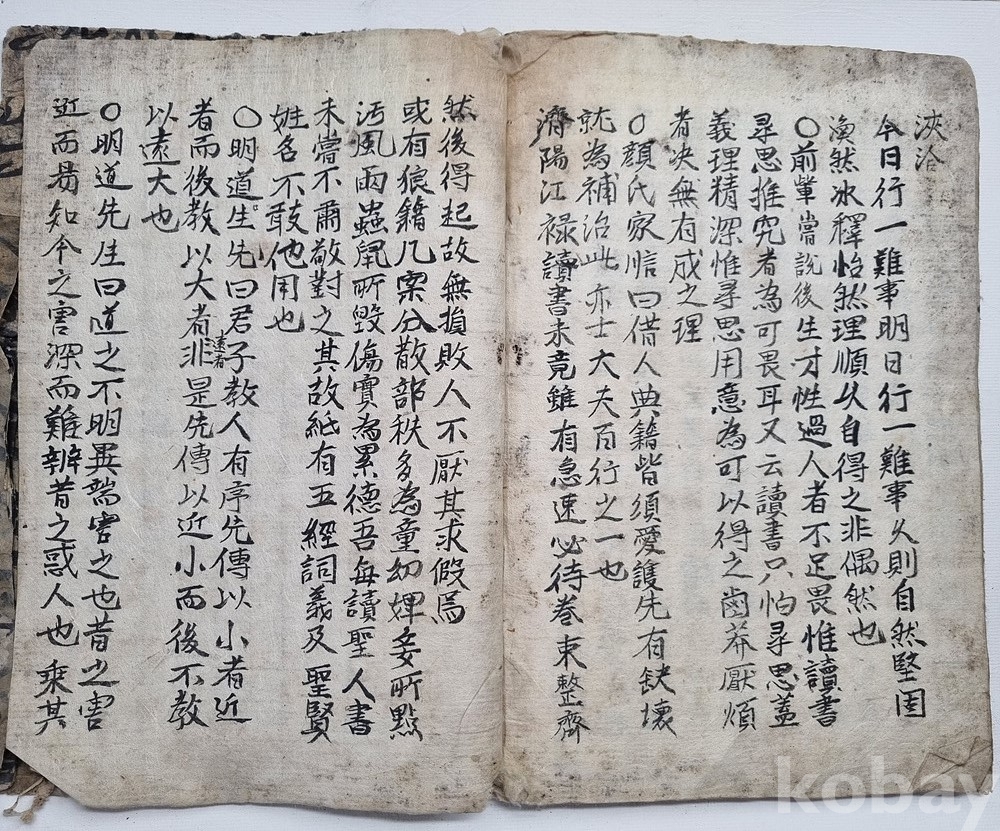 浹洽
今日行一難事明日行一難事久則自然堅固
渙然冰釋怡然理順久自得之非偶然也
○前輩嘗說後生才性過人者不足畏惟讀書
尋思推究者為可畏耳又云讀書只怕尋思蓋
義理精深惟尋思用意為可以得之鹵莽厭煩
者决無有成之理
○顏氏家訓曰借人典籍皆須愛護先有缺壞
就為補治此亦士大夫百行之一也
濟陽江祿讀書未竟雖有急速必待卷束整齊
然後得起故無損敗人不厭其求假焉
或有狼籍几案分散部秩多為童幼婢妾所點
汚風雨蟲鼠所毀傷實為累德吾每讀聖人書
未嘗不肅敬對之其故紙有五經詞義及聖賢
姓名不敢他用也
○明道生先曰君子教人有序先傳以小者近
者而後教以大者遠者非是先傳以近小而後不教
以遠大也
○明道先生曰道之不明異端害之也昔之害
近而易知今之害深而難辨昔之惑人也乘其
kobay